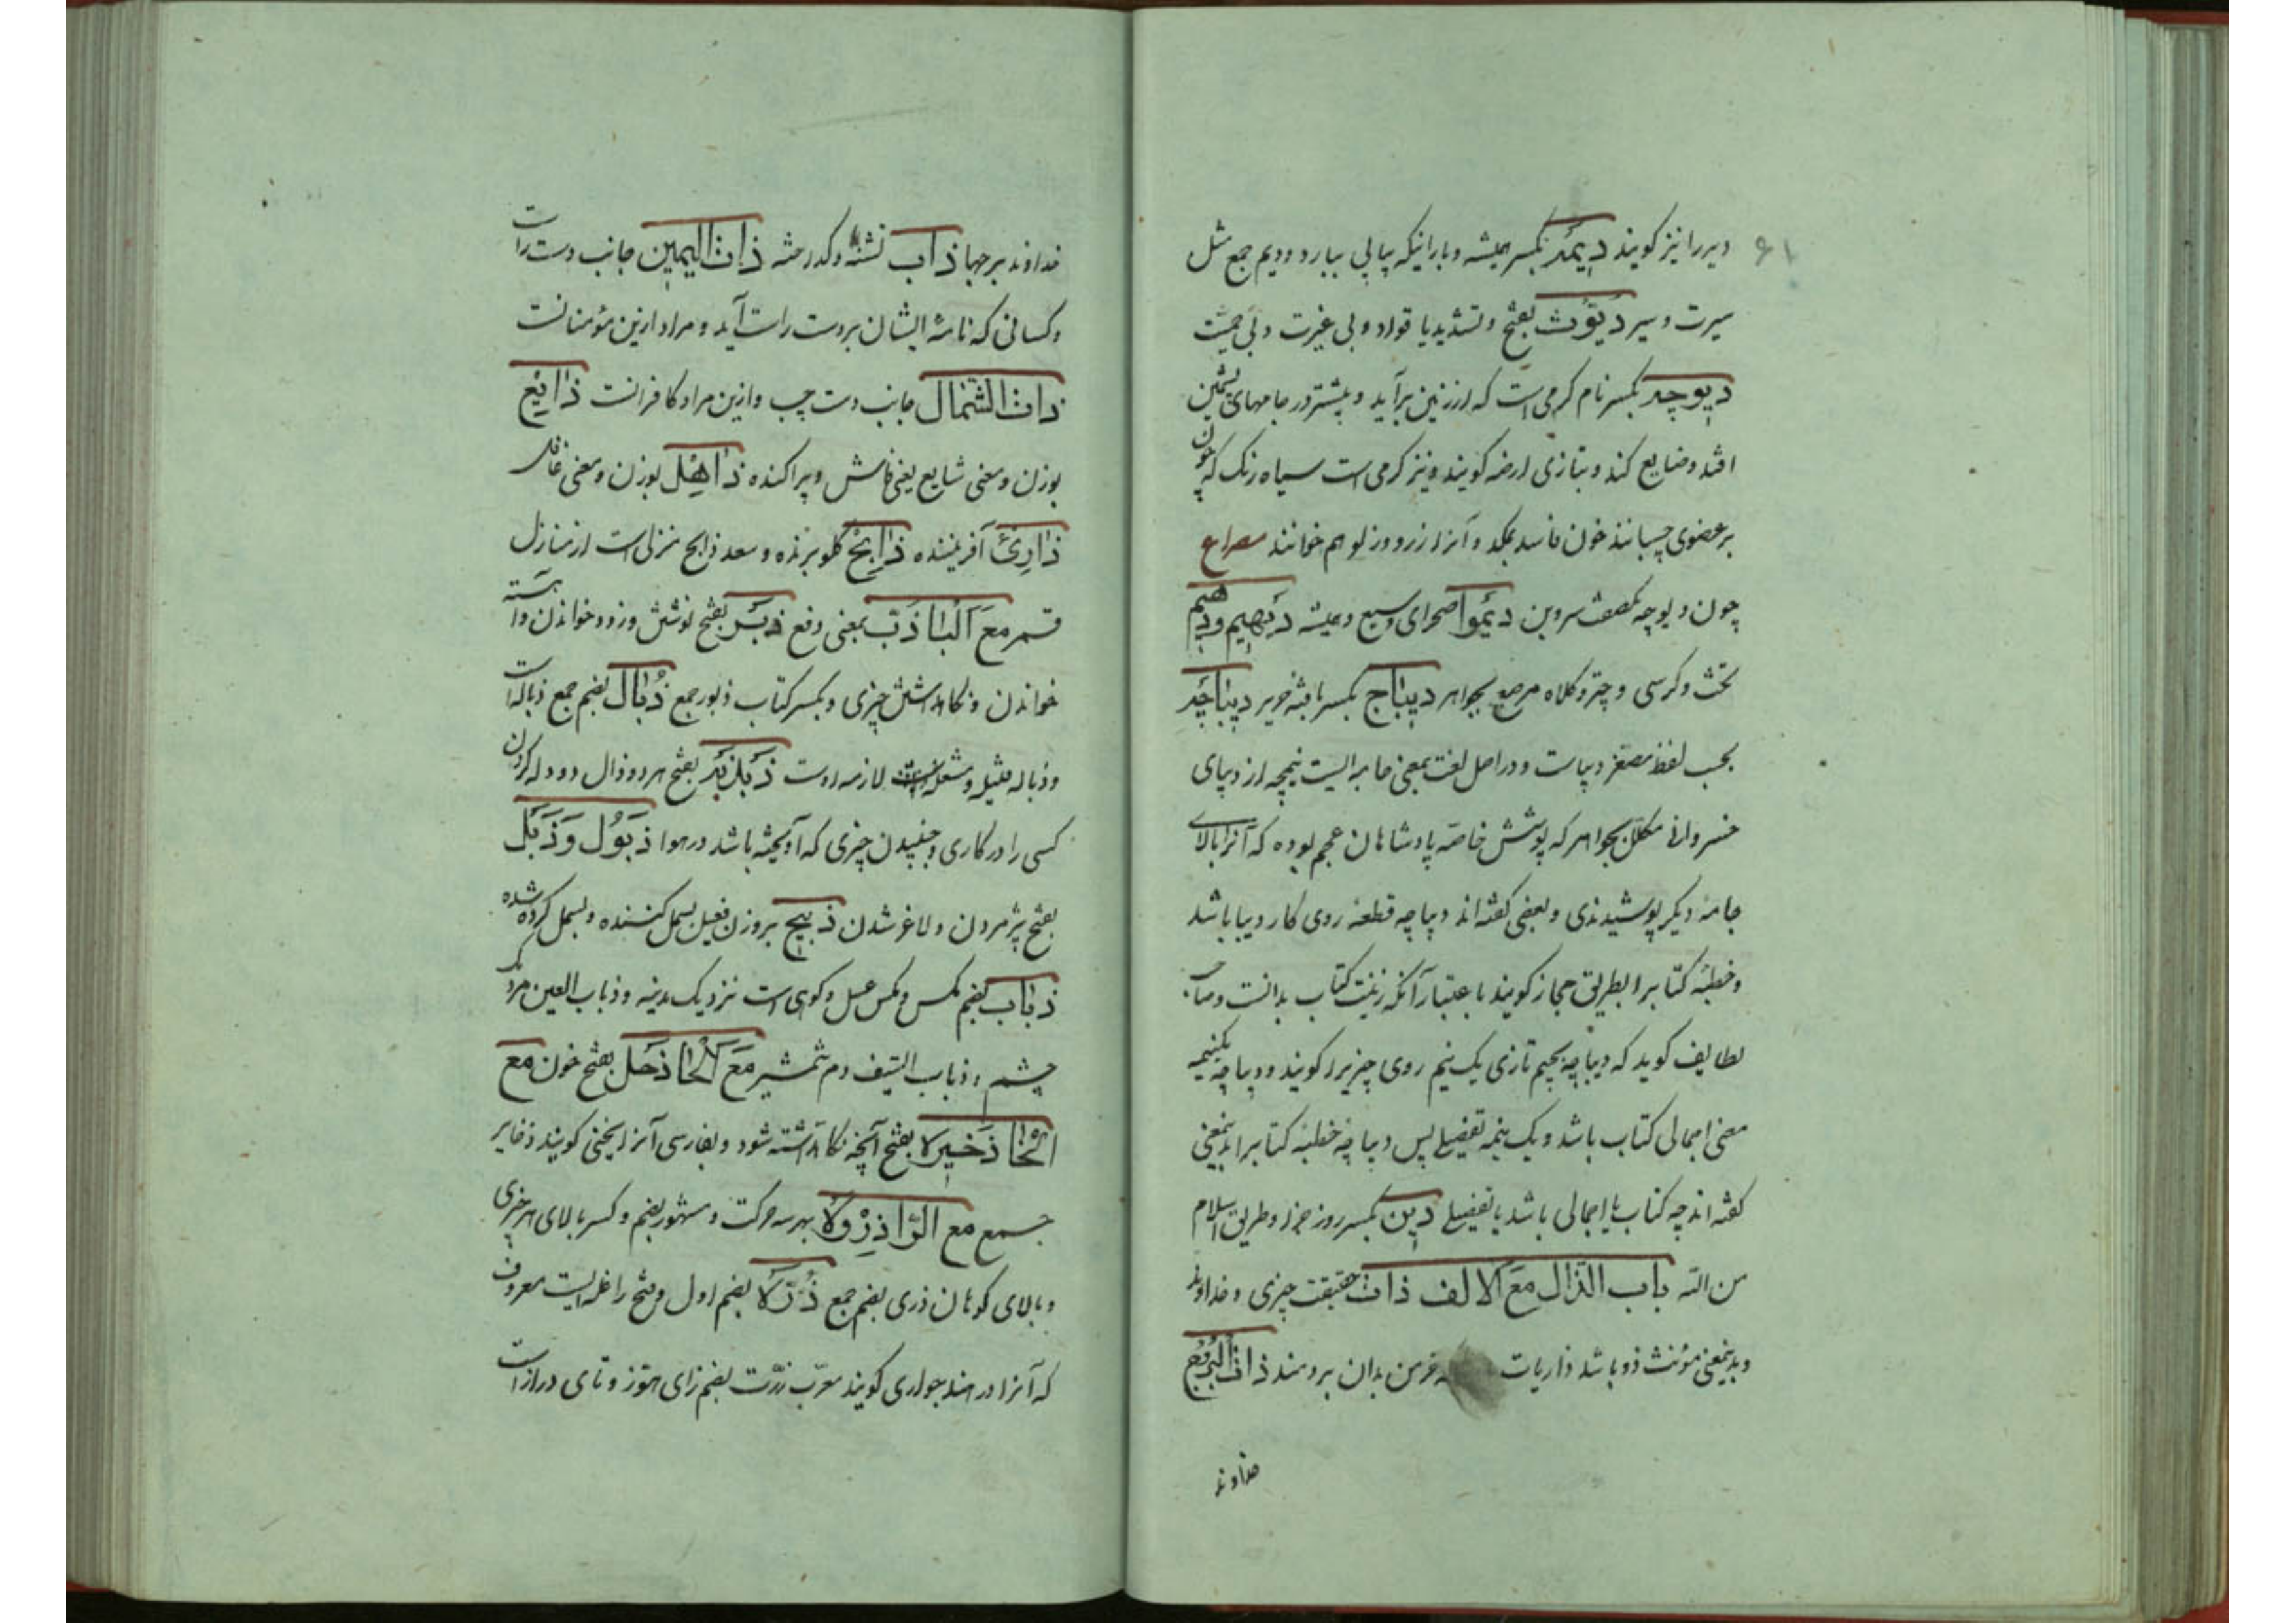 ۶۱
ودیر را نیز گویند دیمه بکسر همیشه و بارانیکه پیاپی ببارد و دیم جمع مثل
سیرت و سیر دیّوث بفتح و تشدید یا قواد و بی غیرت و بی حمیت
دیوچه بکسر نام کرمی است که از زمین برآید و بیشتر در جامهای پشمین
افتد و ضایع کند و بتازی ارضه گویند و نیز کرمی است سیاه رنگ که چون
بر عضوی چسبانند خون فاسد بمکد و آنرا زرو و زلو هم خوانند مصراع
چون دیوچه سروبن دیموا صحرای وسیع و همیشه دیهیم و دیهیم
تخت و کرسی و چتر و کلاه مرصع بجواهر دیباج بکسر بافته حریر دیباچه
بحسب لفظ مصغر دیباست و در اصل لغت بمعنی جامه ایست نیمچه از دیبای
خسروانی مکلل بجواهر که پوشش خاصه پادشاهان عجم بوده که آنرا بالای
جامه دیگر پوشیدندی و بعضی گفته اند دیباچه قطعه روی کار دیبا باشد
و خطبه کتابرا بطریق مجاز گویند باعتبار آنکه زینت کتاب بدانست و صاحب
لطایف گوید که دیباچه بجیم تازی یک نیم روی چیزیرا گویند و دیباچه یکنیمه
معنی اجمالی کتاب باشد و یک نیمه تفصیلی پس دیباچه خطبه کتابرا بدینمعنی
گفته اند چه کتاب یا اجمالی باشد یا تفصیلی دین بکسر روز جزا و طریق اسلام
من الله باب الذال مع الالف ذات حقیقت چیزی و خداوند
و بدینمعنی مؤنث ذو باشد ذاریات خرمن بدان بردمند ذات البروج
خداوند
خداوند برجها ذاب نشنه و گداخته ذات الیمین جانب دست راست
و کسانی که نامه ایشان بردست راست آید و مراد ازین مؤمنانست
ذات الشمال جانب دست چپ و ازین مراد کافرانست ذایع
بوزن و معنی شایع یعنی فاش و پراکنده ذاهل بوزن و معنی غافل
ذاری آفریننده ذابح گلو برنده و سعد ذابح منزلی است از منازل
قمر مع البا ذب بمعنی دفع ذبر بفتح نوشتن و زود خواندن و آهسته
خواندن و نگاه داشتن چیزی و بکسر کتاب ذبور جمع ذبال بضم جمع ذباله است
و ذباله فتیله و شعله لازمه اوست ذبذبه بفتح هر دو ذال دو دله کردن
کسی را در کاری و جنبیدن چیزی که آویخته باشد در هوا ذبول و ذبل
بفتح پژمردن و لاغر شدن ذبیح بروزن فعیل بسمل کننده و بسمل کرده شده
ذباب بضم مگس و مگس عسل و کوهی است نزدیک مدینه و ذباب العین مردمک
چشم و ذباب السیف دم شمشیر مع الحا ذحل بفتح خون مع
الخا ذخیره بفتح آنچه نگاه داشته شود و بفارسی آنرا یخنی گویند ذخایر
جمع مع الرا ذروه بهر سه حرکت و مشهور بضم و کسر بالای هر چیزی
و بالای کوهان ذری بضم جمع ذره بضم اول و فتح را غله ایست معروف
که آنرا در هند جواری گویند معرب زرت بضم زای هوز و تای درازست